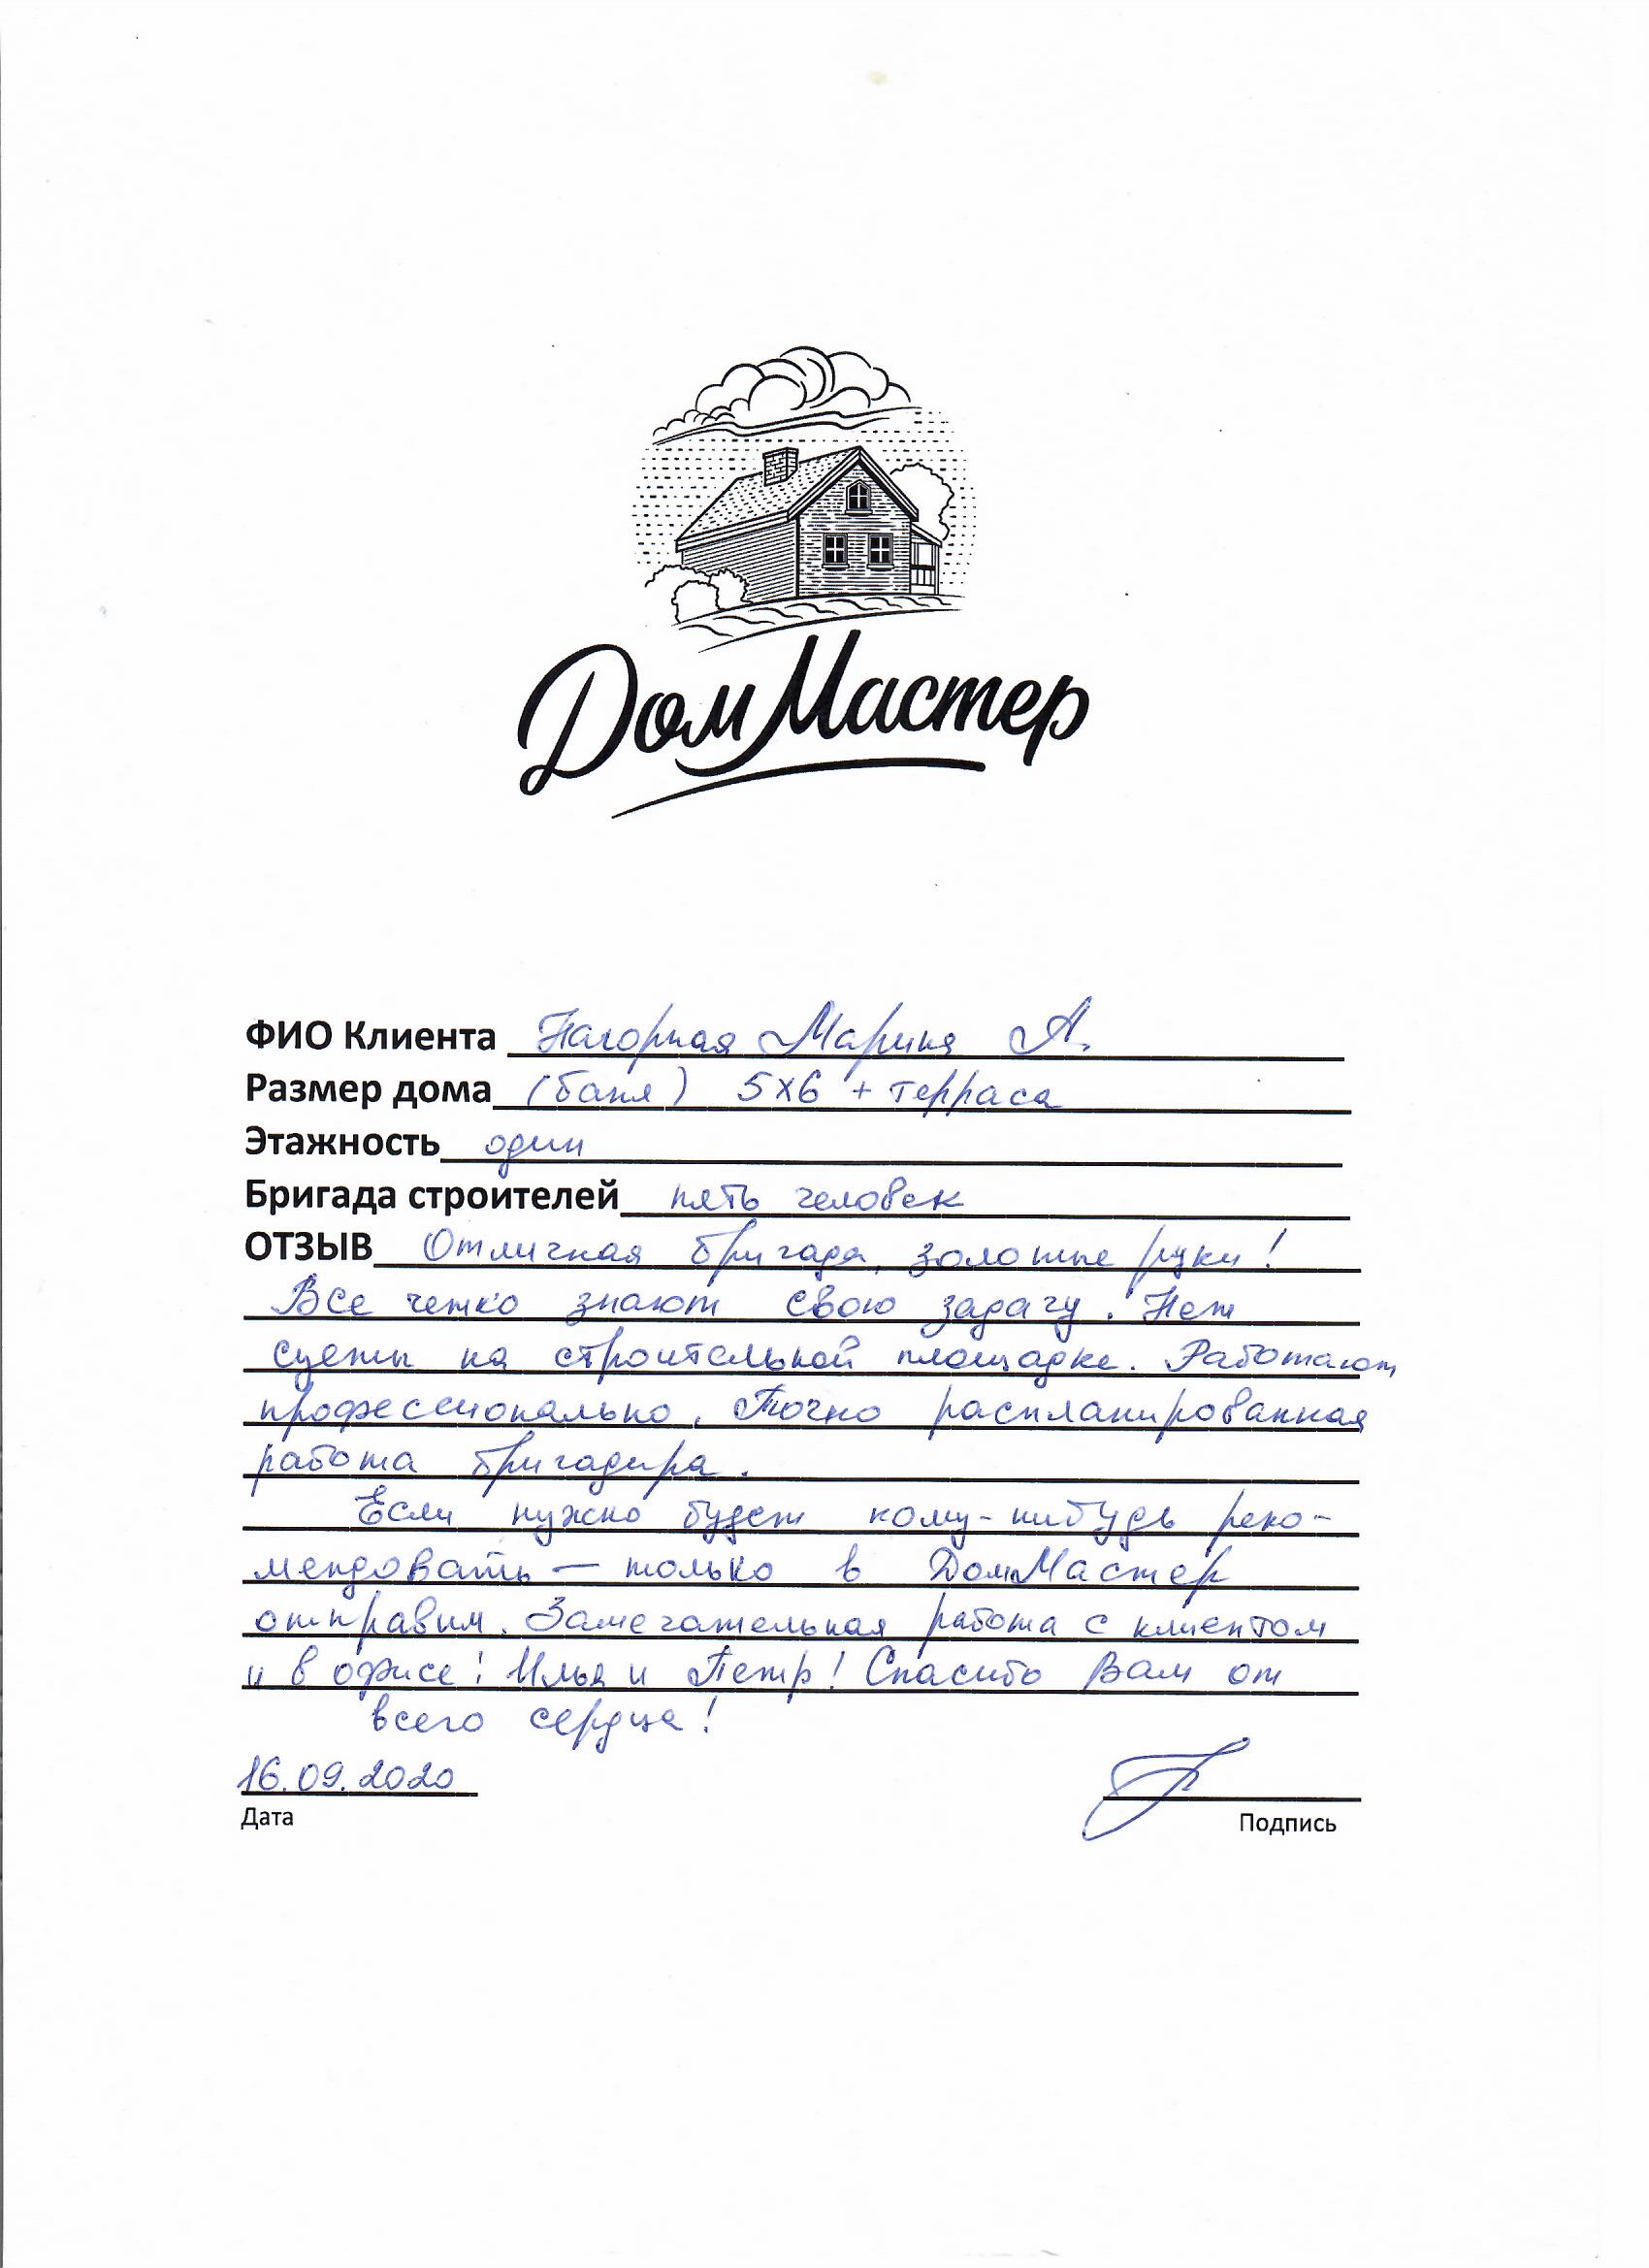 ДомМастер
ФИО Клиента Нагорная Марина А.
Размер дома (баня) 5х6 + терраса
Этажность один
Бригада строителей пять человек
ОТЗЫВ Отличная бригада, золотые руки!
Все четко знают свою задачу. Нет
суеты на строительной площадке. Работают
профессионально. Точно распланированная
работа бригадира.
Если нужно будет кому-нибудь реко-
мендовать — только в ДомМастер
отправим. Замечательная работа с клиентом
и в офисе! Илья и Петр! Спасибо Вам от
всего сердца!
16.09.2020
Дата Подпись